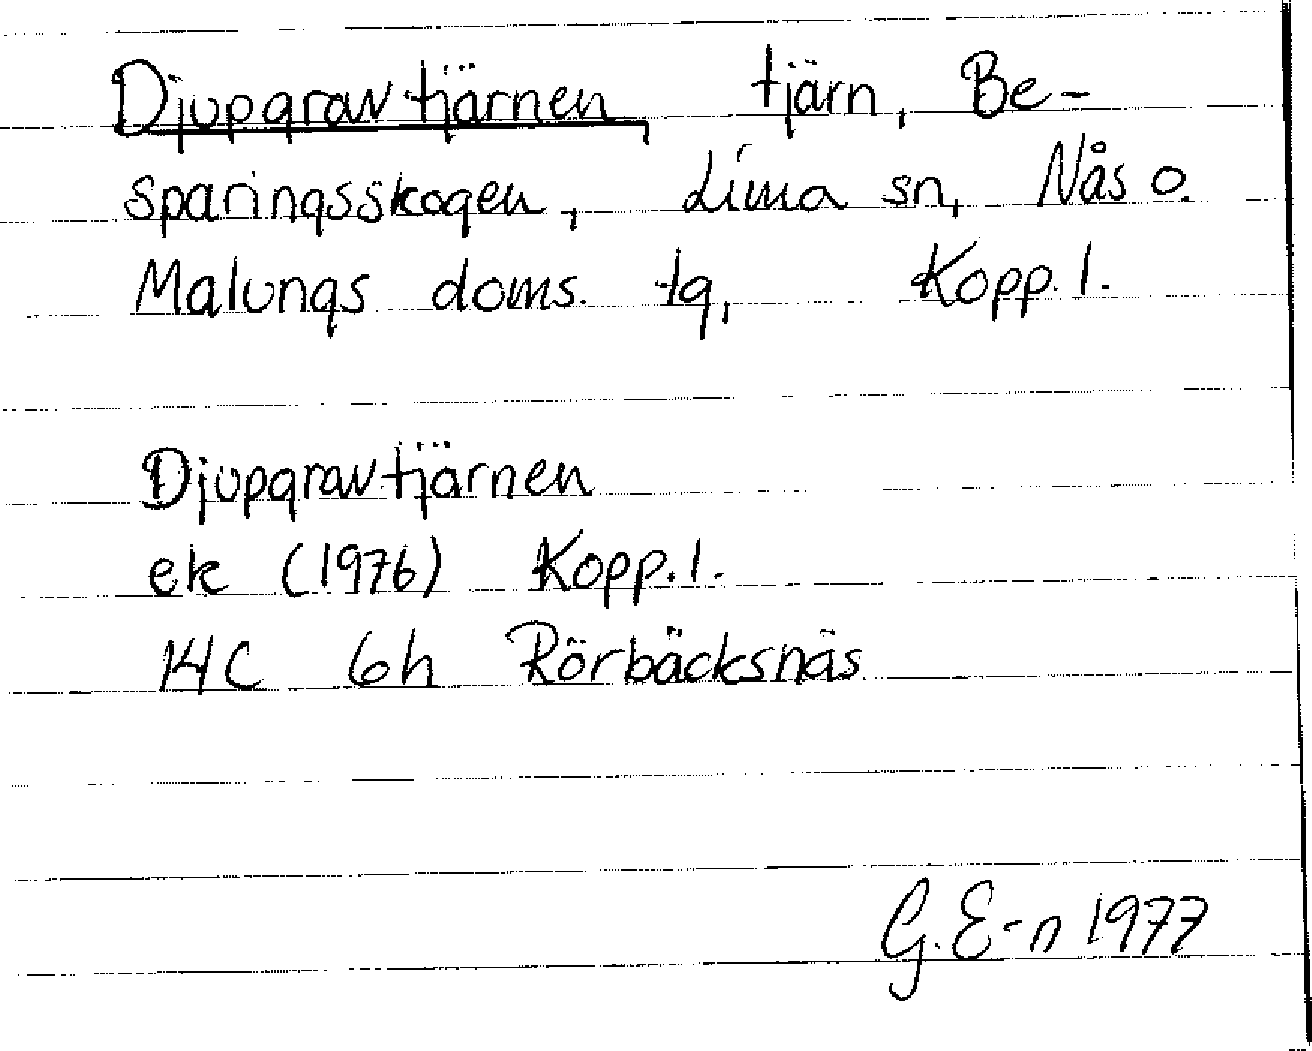 Djupgravtjärnen, tjärn, Be-
sparingsskogen, Lima sn, Nås o.
Malungs doms. tg, Kopp. l.
Djupgravtjärnen
ek (1976) Kopp. l.
14C 6h Rörbäcksnäs
G. E-n 1977